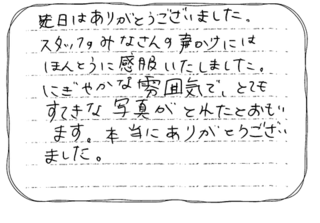 先日はありがとうございました。
スタッフのみなさんの声かけには
ほんとうに感服いたしました。
にぎやかな雰囲気で、とても
すてきな写真がとれたとおもい
ます。本当にありがとうござい
ました。